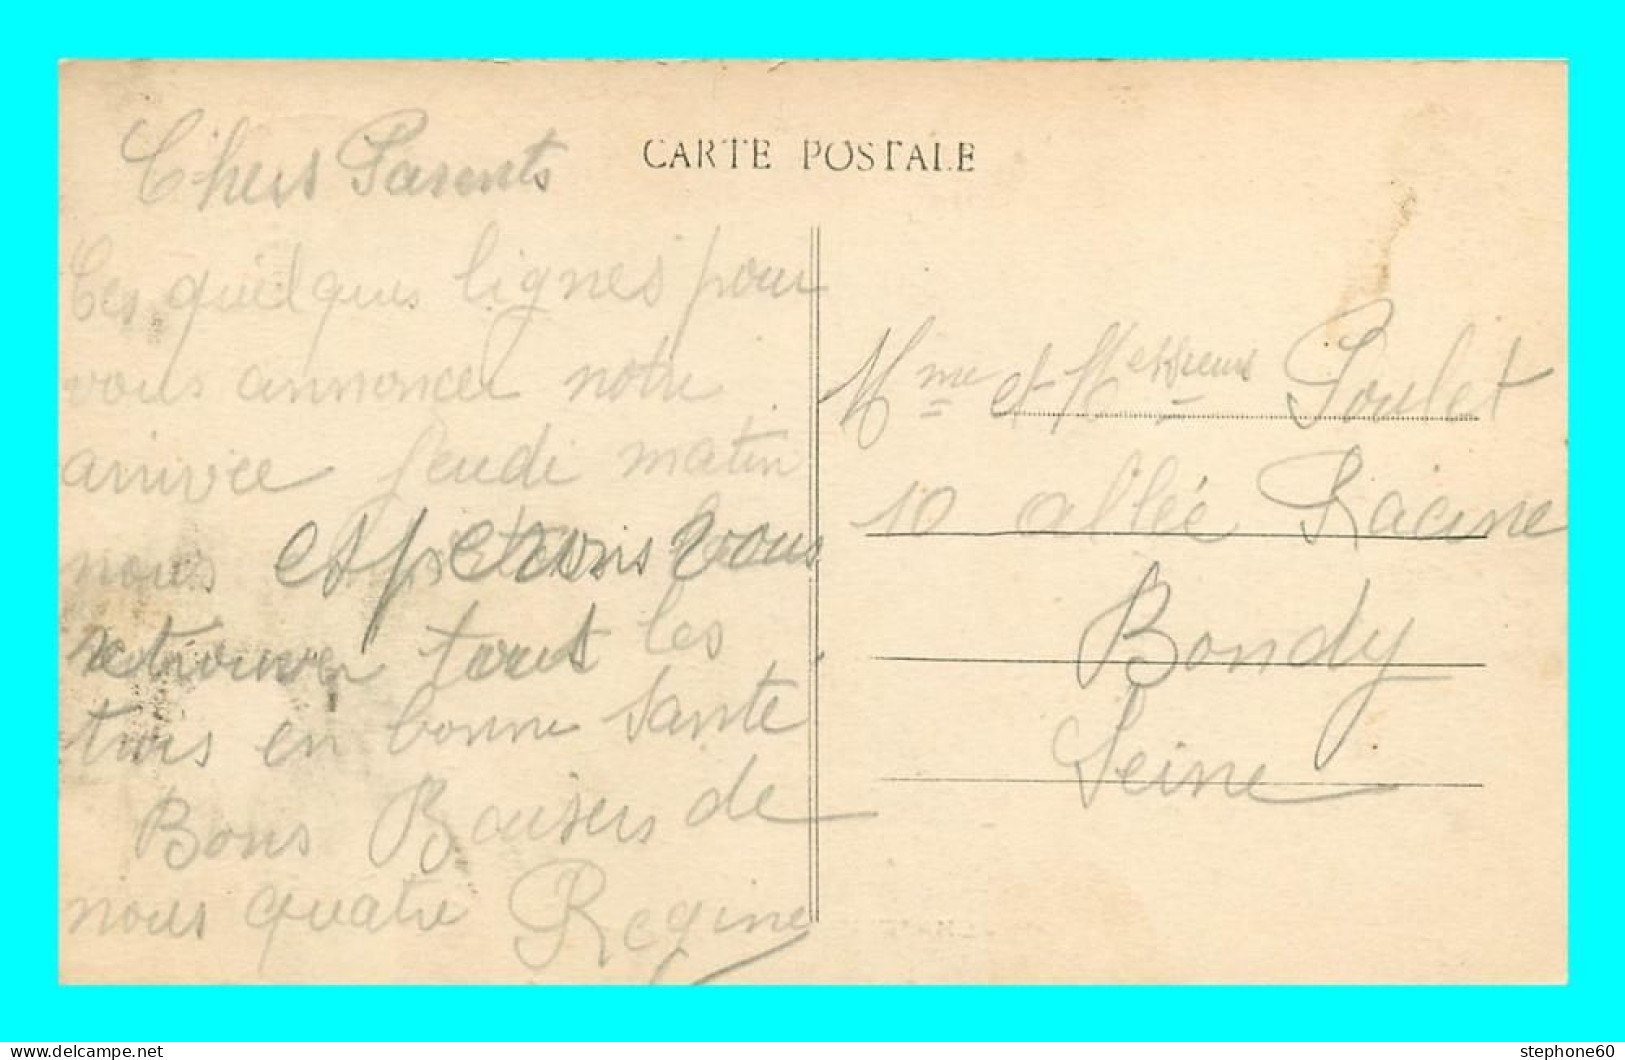 CARTE POSTALE
Chers Parents
Ces quelques lignes pour
vous annoncer notre
arrivée Jeudi matin
nous espérons vous
retrouver tous les
trois en bonne santé
Bons Baisers de
nous quatre Regine
Mme et Messieurs Poulet
10 allée Racine
Bondy
Seine
delcampe.net
stephone60